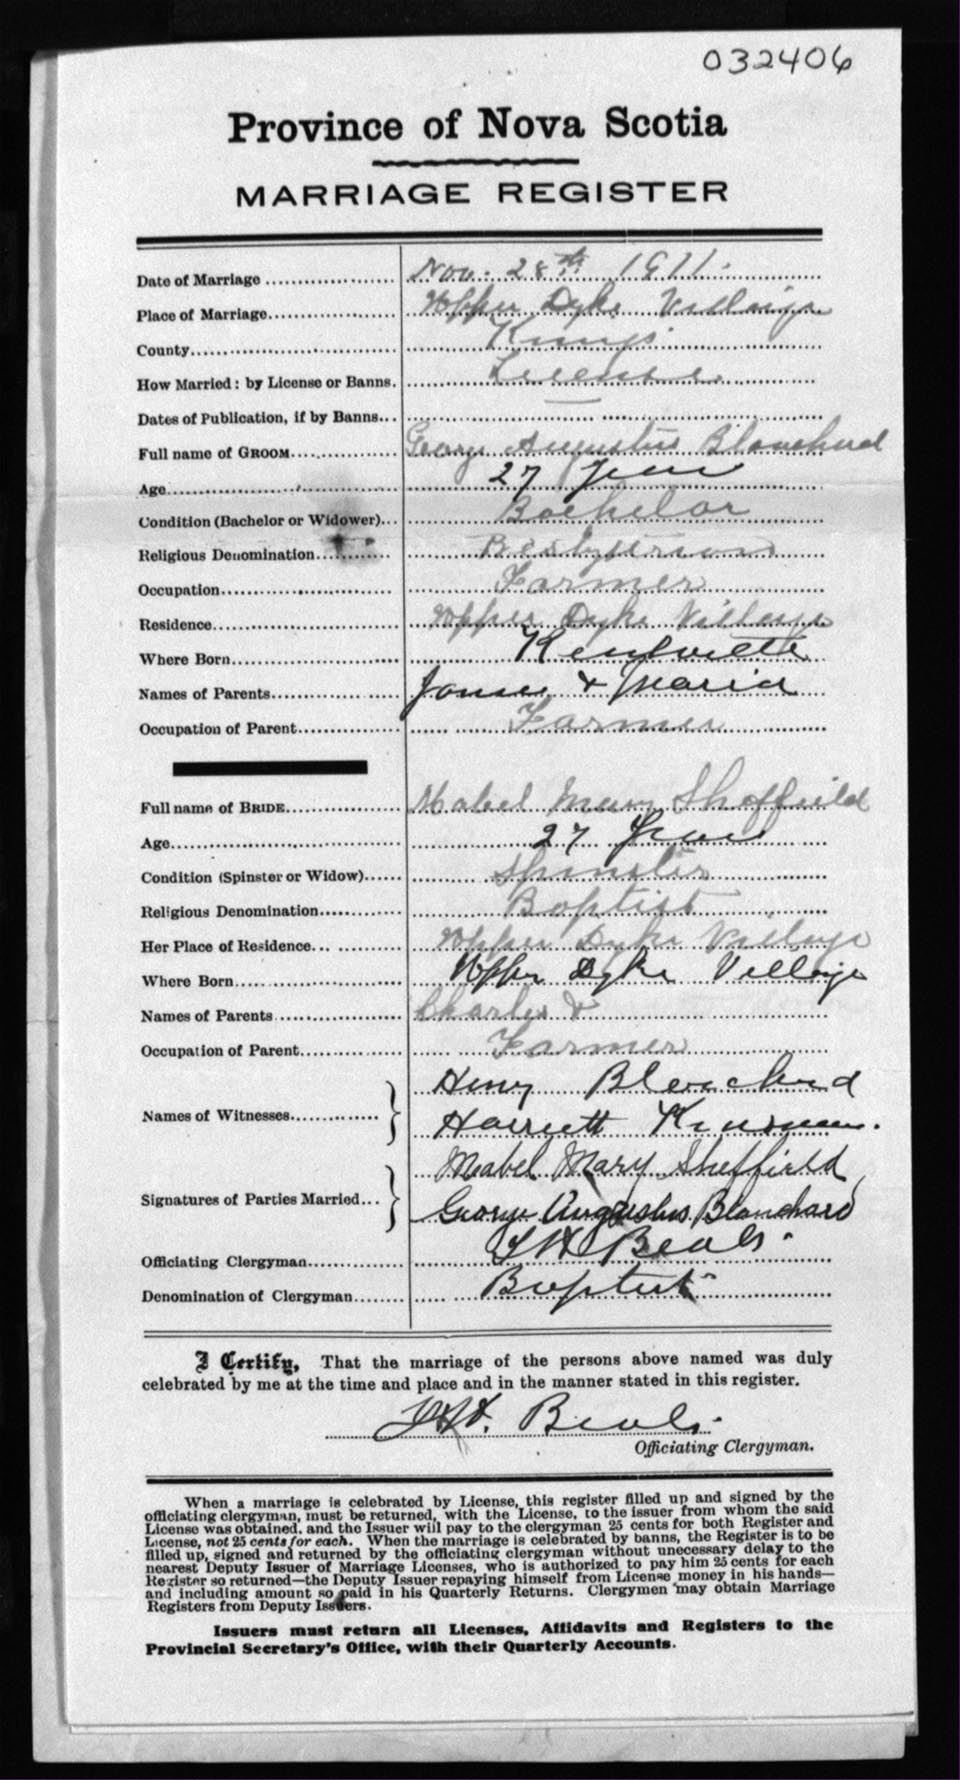 032406
Province of Nova Scotia
MARRIAGE REGISTER
Date of Marriage Nov. 28th 1911.
Place of Marriage Upper Dyke Village
County Kings
How Married: by License or Banns. License
Dates of Publication, if by Banns —
Full name of GROOM George Augustus Blanchard
Age 27 Years
Condition (Bachelor or Widower) Bachelor
Religious Denomination Presbyterian
Occupation Farmer
Residence Upper Dyke Village
Where Born Kentville
Names of Parents James & Maria
Occupation of Parent Farmer
Full name of BRIDE Mabel Mary Sheffield
Age 27 Years
Condition (Spinster or Widow) Spinster
Religious Denomination Baptist
Her Place of Residence Upper Dyke Village
Where Born Upper Dyke Village
Names of Parents Charles &
Occupation of Parent Farmer
Names of Witnesses Henry Blanchard
Harriett Kinsman.
Signatures of Parties Married Mabel Mary Sheffield
George Augustus Blanchard
Officiating Clergyman Beals.
Denomination of Clergyman Baptist
I Certify, That the marriage of the persons above named was duly
celebrated by me at the time and place and in the manner stated in this register.
Beals.
Officiating Clergyman.
When a marriage is celebrated by License, this register filled up and signed by the
officiating clergyman, must be returned, with the License, to the issuer from whom the said
License was obtained, and the Issuer will pay to the clergyman 25 cents for both Register and
License, not 25 cents for each. When the marriage is celebrated by banns, the Register is to be
filled up, signed and returned by the officiating clergyman without unecessary delay to the
nearest Deputy Issuer of Marriage Licenses, who is authorized to pay him 25 cents for each
Register so returned—the Deputy Issuer repaying himself from License money in his hands—
and including amount so paid in his Quarterly Returns. Clergymen may obtain Marriage
Registers from Deputy Issuers.
Issuers must return all Licenses, Affidavits and Registers to the
Provincial Secretary's Office, with their Quarterly Accounts.